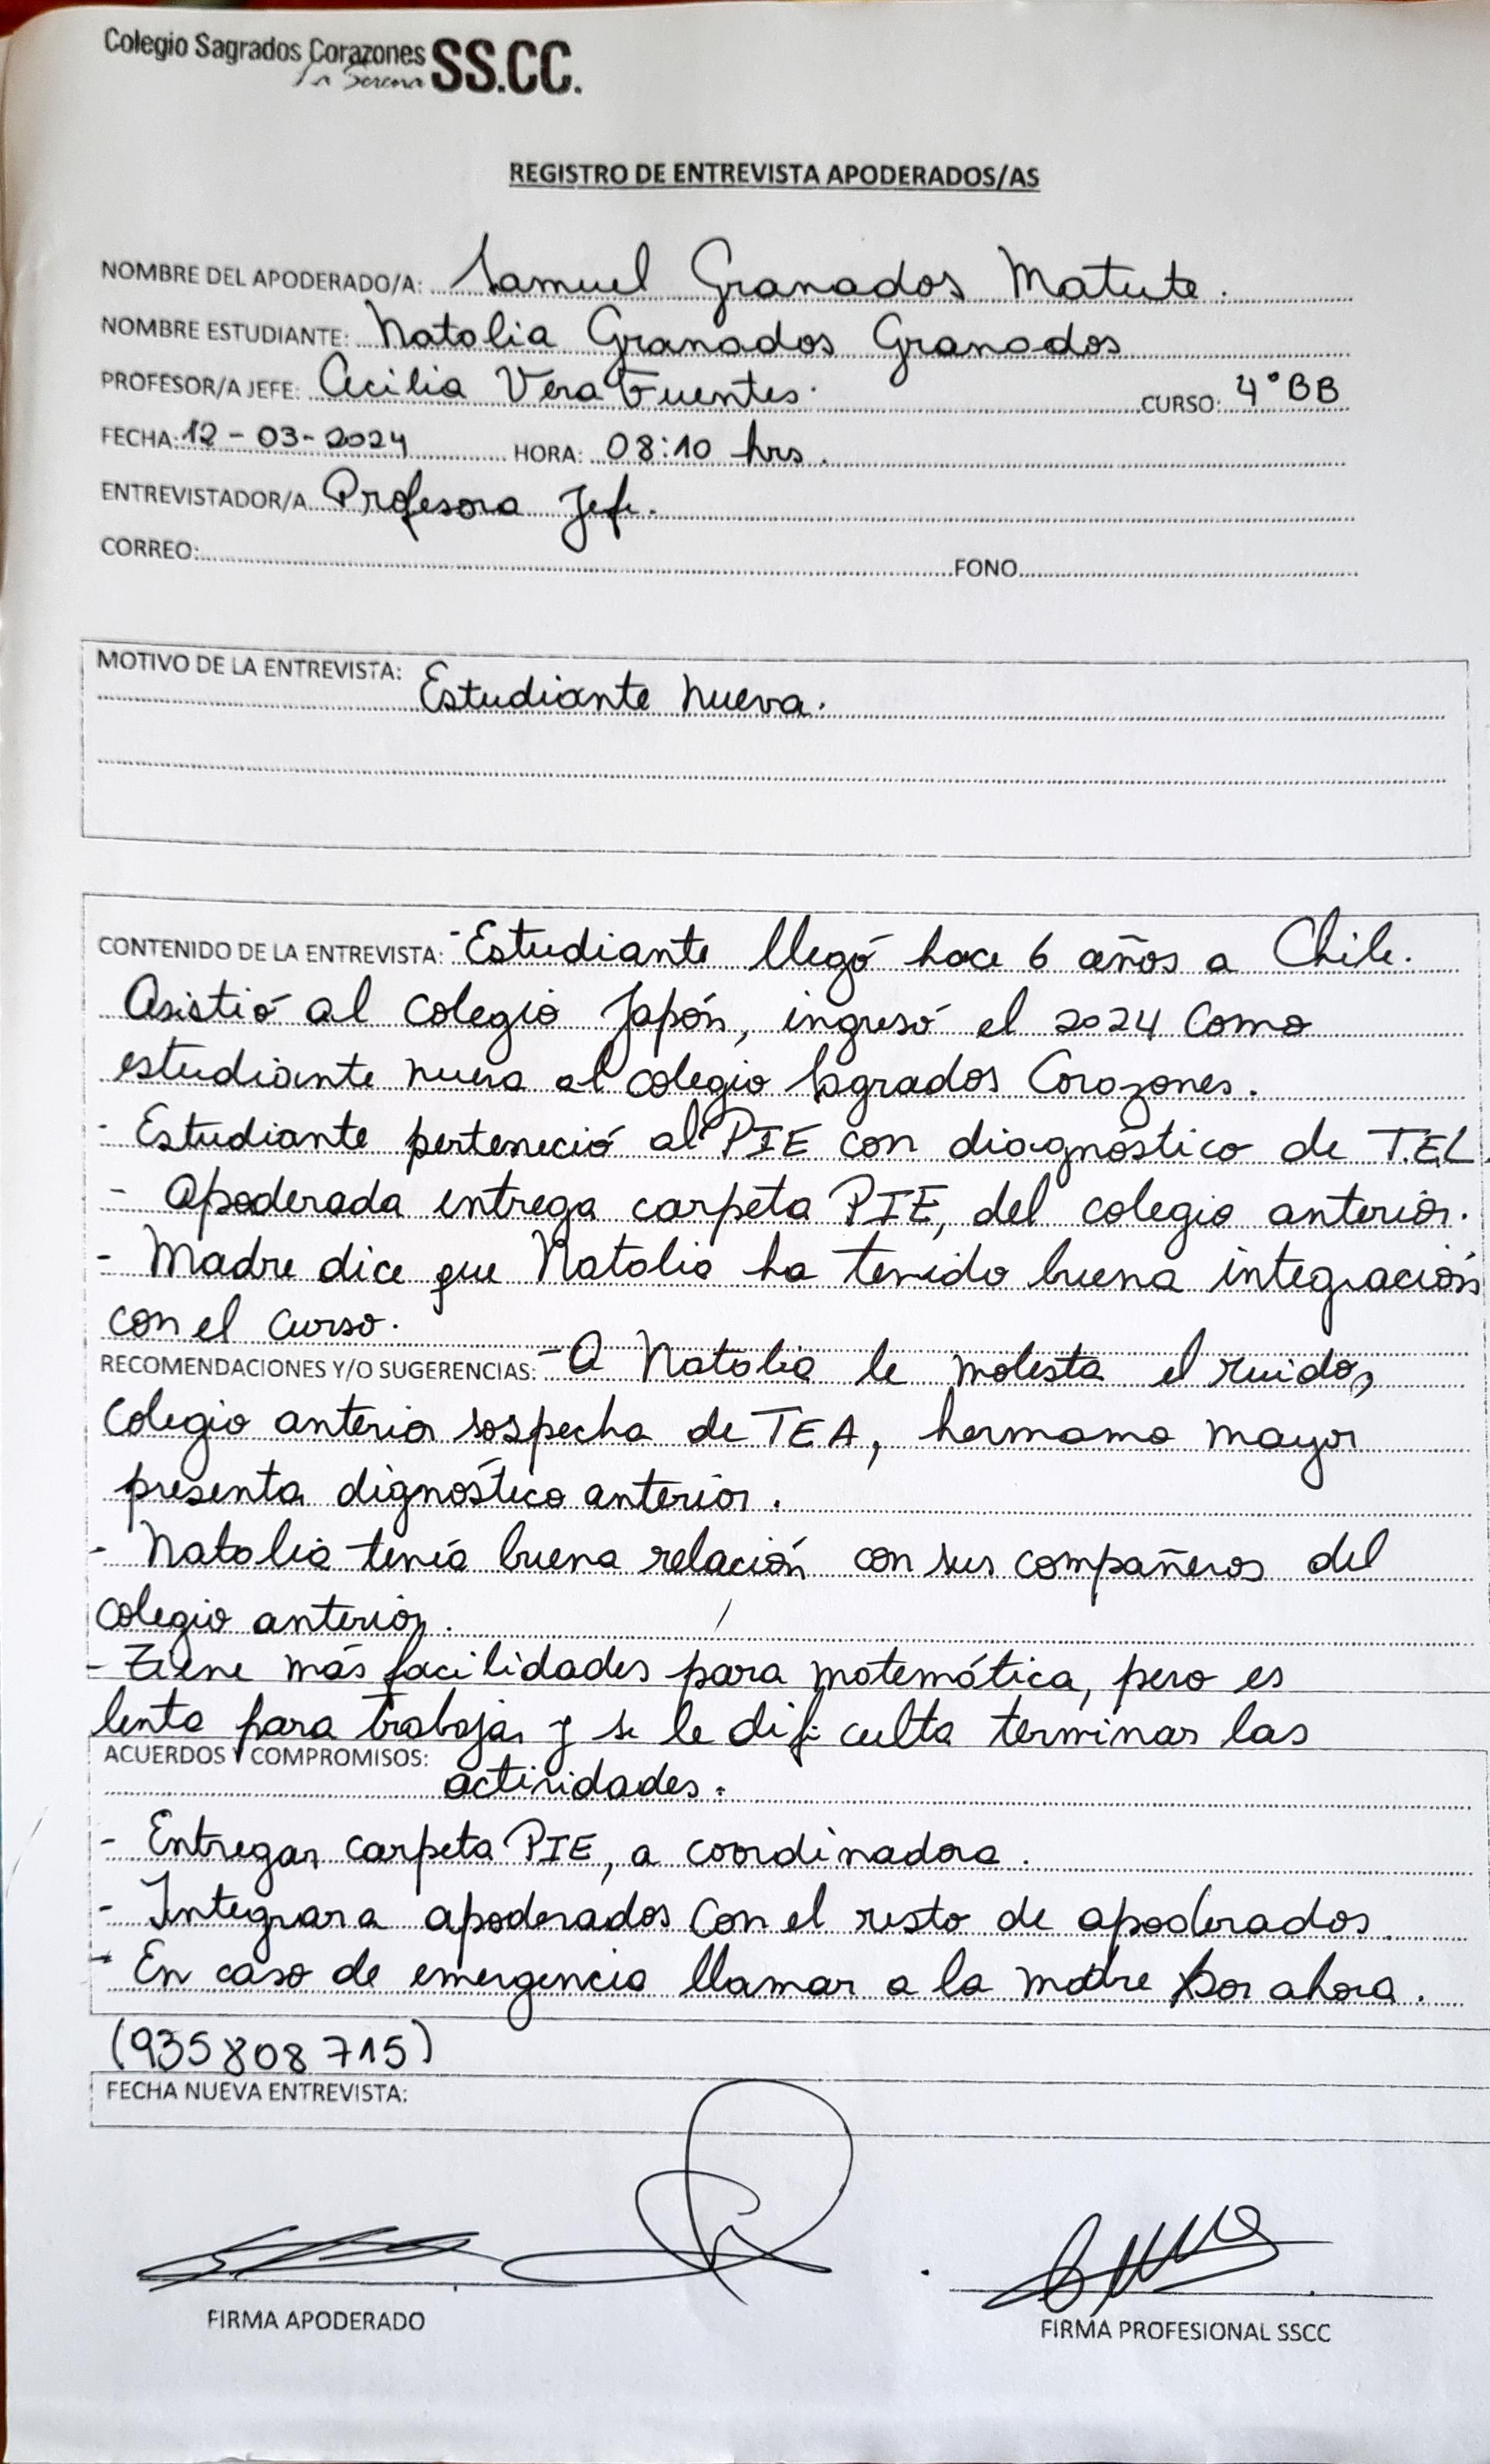 Colegio Sagrados Corazones SS.CC.
La Serena
REGISTRO DE ENTREVISTA APODERADOS/AS
NOMBRE DEL APODERADO/A: Samuel Granados Matute.
NOMBRE ESTUDIANTE: Natalia Granados Granados
PROFESOR/A JEFE: Cecilia Vera Fuentes. CURSO: 4°BB
FECHA: 12-03-2024 HORA: 08:10 hrs.
ENTREVISTADOR/A Profesora Jefe.
CORREO: FONO
MOTIVO DE LA ENTREVISTA: Estudiante nueva.
CONTENIDO DE LA ENTREVISTA: -Estudiante llegó hace 6 años a Chile.
Asistió al colegio Japón, ingresó el 2024 como
estudiante nueva al colegio Sagrados Corazones.
- Estudiante perteneció al PIE con diagnóstico de T.E.L.
- Apoderada entrega carpeta PIE, del colegio anterior.
- Madre dice que Natalia ha tenido buena integración
con el curso.
RECOMENDACIONES Y/O SUGERENCIAS: -A Natalia le molesta el ruido,
colegio anterior sospecha de TEA, hermano mayor
presenta dignóstico anterior.
- Natalia tenía buena relación con sus compañeros del
colegio anterior.
- Tiene más facilidades para matemática, pero es
lenta para trabajar y se le dificulta terminar las
ACUERDOS Y COMPROMISOS: actividades.
- Entregar carpeta PIE, a coordinadora.
- Integrar a apoderados con el resto de apoderados.
- En caso de emergencia llamar a la madre por ahora.
(935808715)
FECHA NUEVA ENTREVISTA:
FIRMA APODERADO
FIRMA PROFESIONAL SSCC